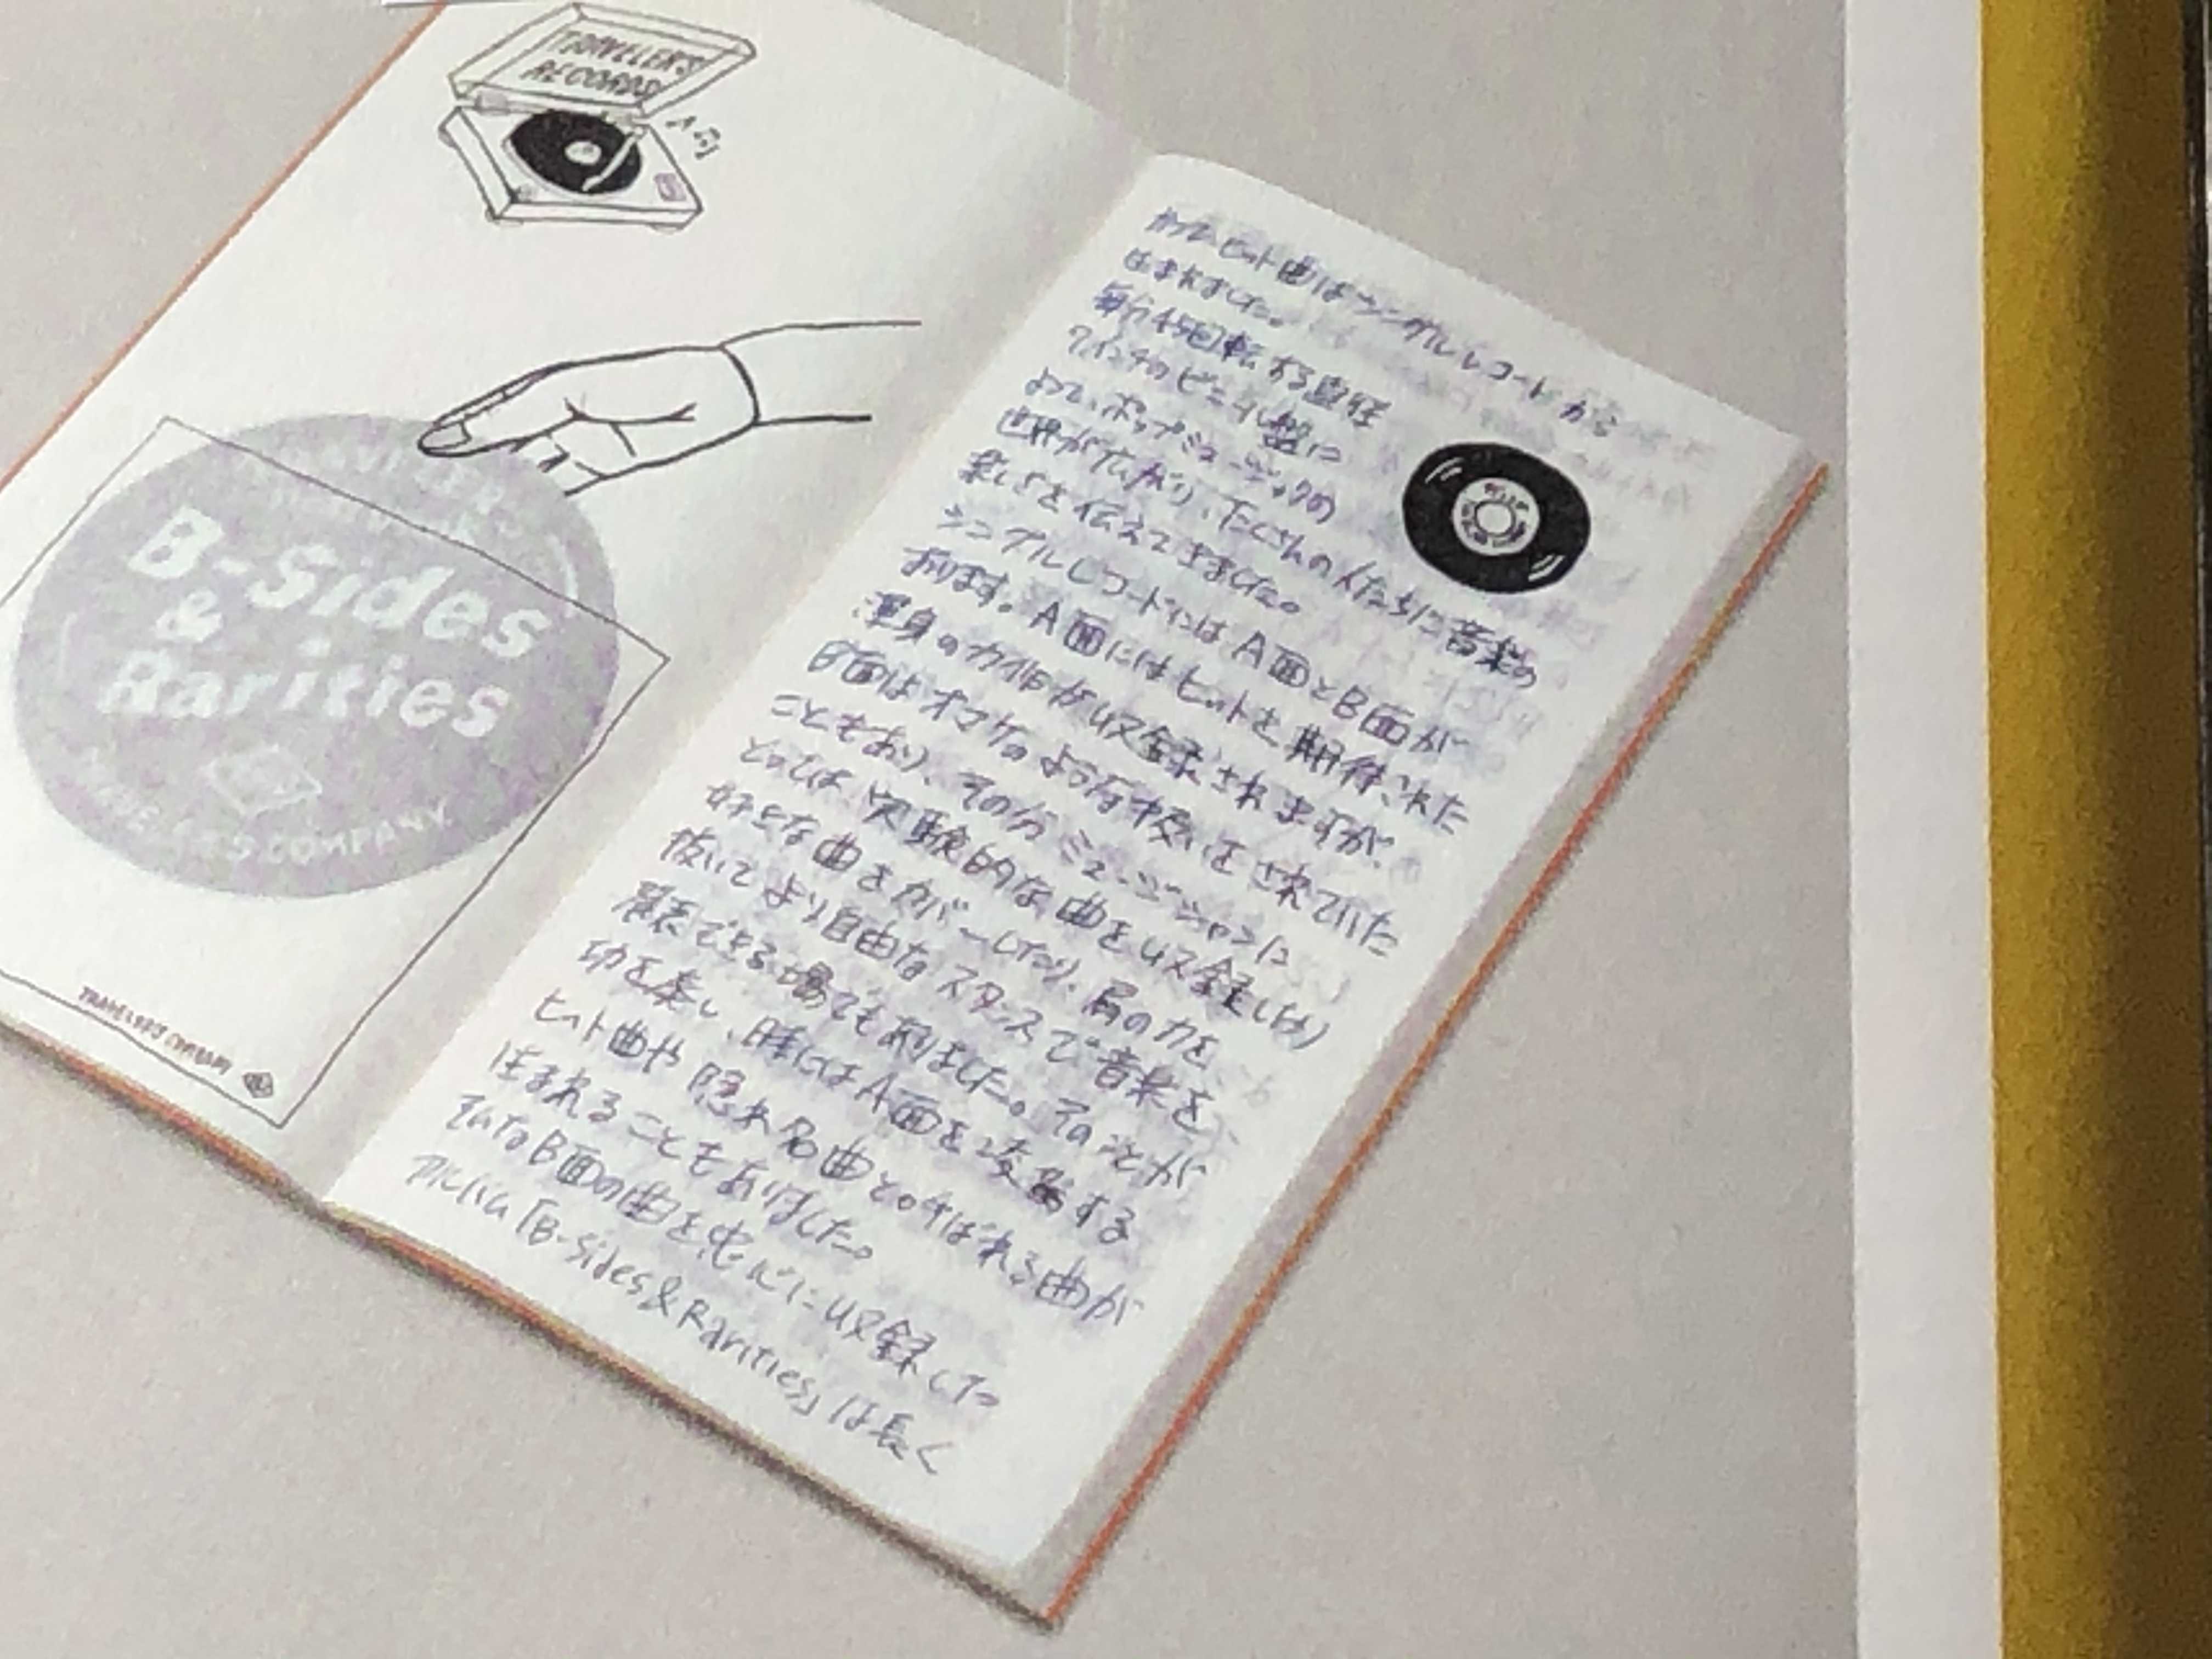 TRAVELER'S
RECORDS
TRAVELER'S
B-Sides
&
Rarities
TRAVELER'S COMPANY
TRAVELER'S COMPANY
かつてヒット曲はシングルレコードから
生まれました。
毎分45回転する直径
7インチのビニール盤に
よって、ポップミュージックの
世界が広がり、たくさんの人たちに音楽の
楽しさを伝えてきました。
シングルレコードにはA面とB面が
あります。A面にはヒットを期待された
渾身の力作が収録されますが、
B面はオマケのような扱いをされていた
こともあり、その分ミュージシャンに
とっては、実験的な曲を収録したり
好きな曲をカバーしたり、肩の力を
抜いてより自由なスタンスで音楽を
発表できる場でもありました。そのことが
功を奏し、時にはA面を凌駕する
ヒット曲や隠れ名曲と呼ばれる曲が
生まれることもありました。
そんなB面の曲を中心に収録した
アルバム「B-Sides & Rarities」は長く